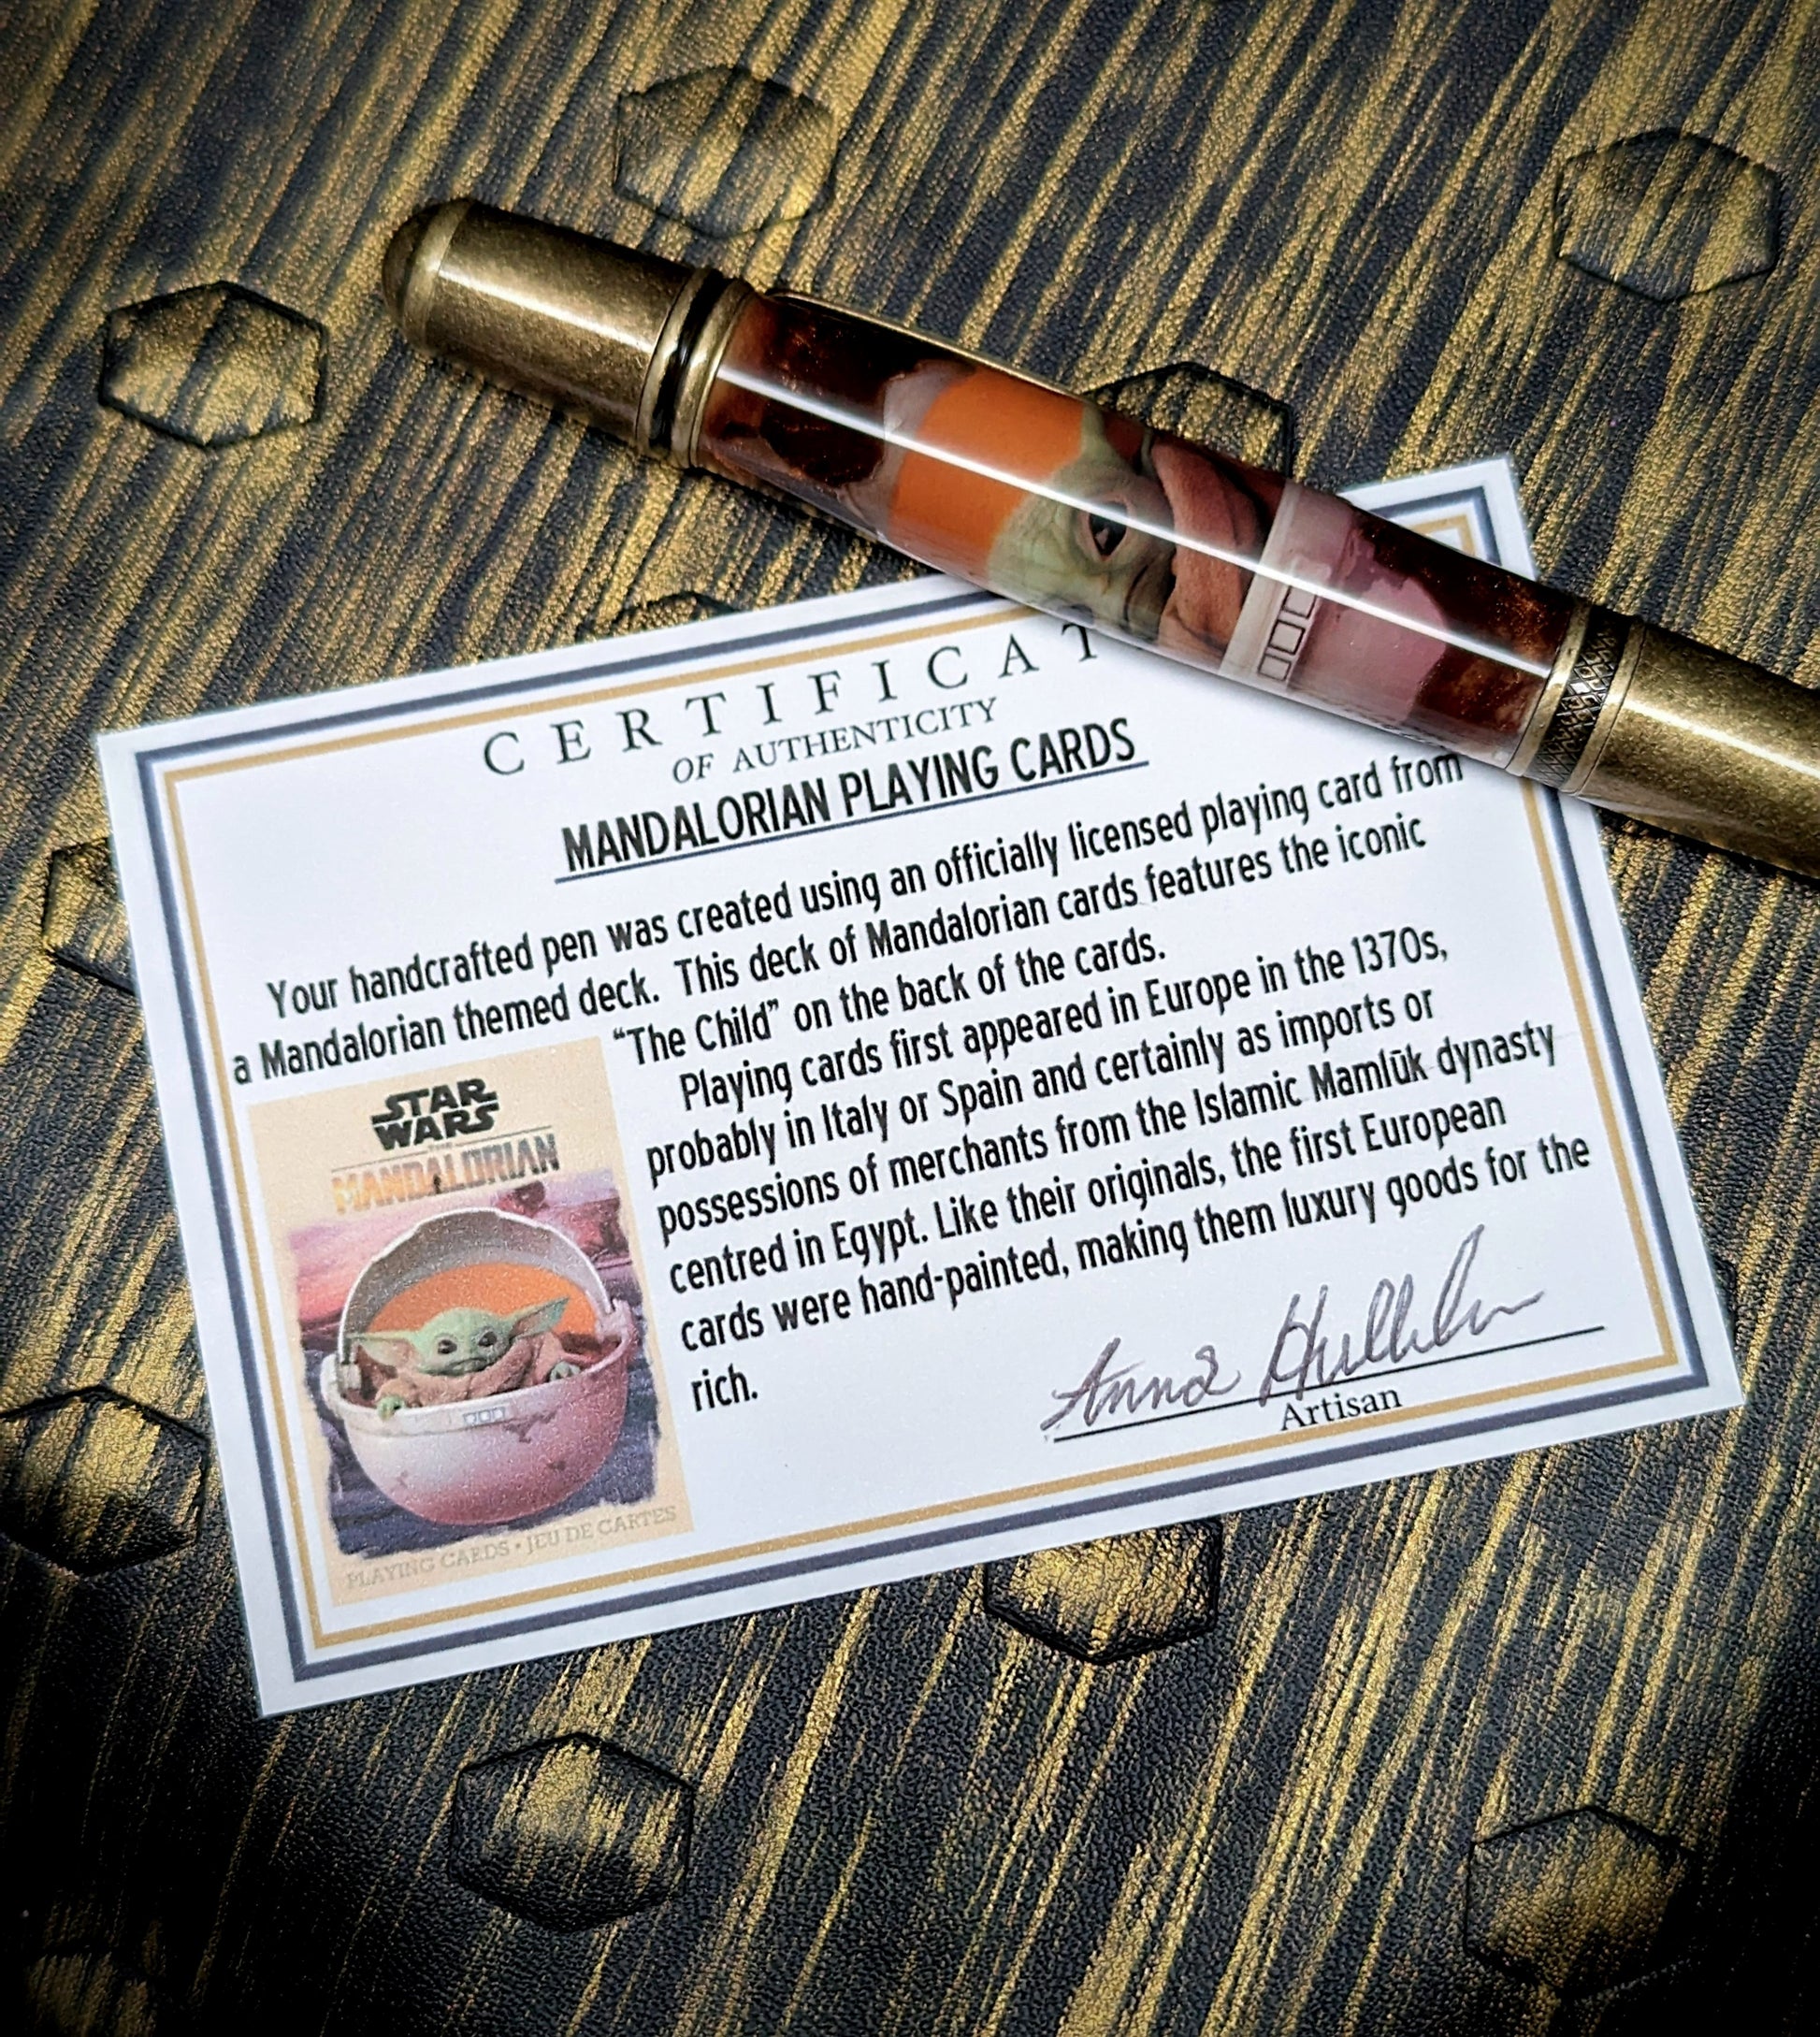 CERTIFICAT
OF AUTHENTICITY
MANDALORIAN PLAYING CARDS
Your handcrafted pen was created using an officially licensed playing card from
a Mandalorian themed deck. This deck of Mandalorian cards features the iconic
"The Child" on the back of the cards.
Playing cards first appeared in Europe in the 1370s,
probably in Italy or Spain and certainly as imports or
possessions of merchants from the Islamic Mamlūk dynasty
centred in Egypt. Like their originals, the first European
cards were hand-painted, making them luxury goods for the
rich.
STAR
WARS
THE
MANDALORIAN
PLAYING CARDS • JEU DE CARTES
Anna
Artisan